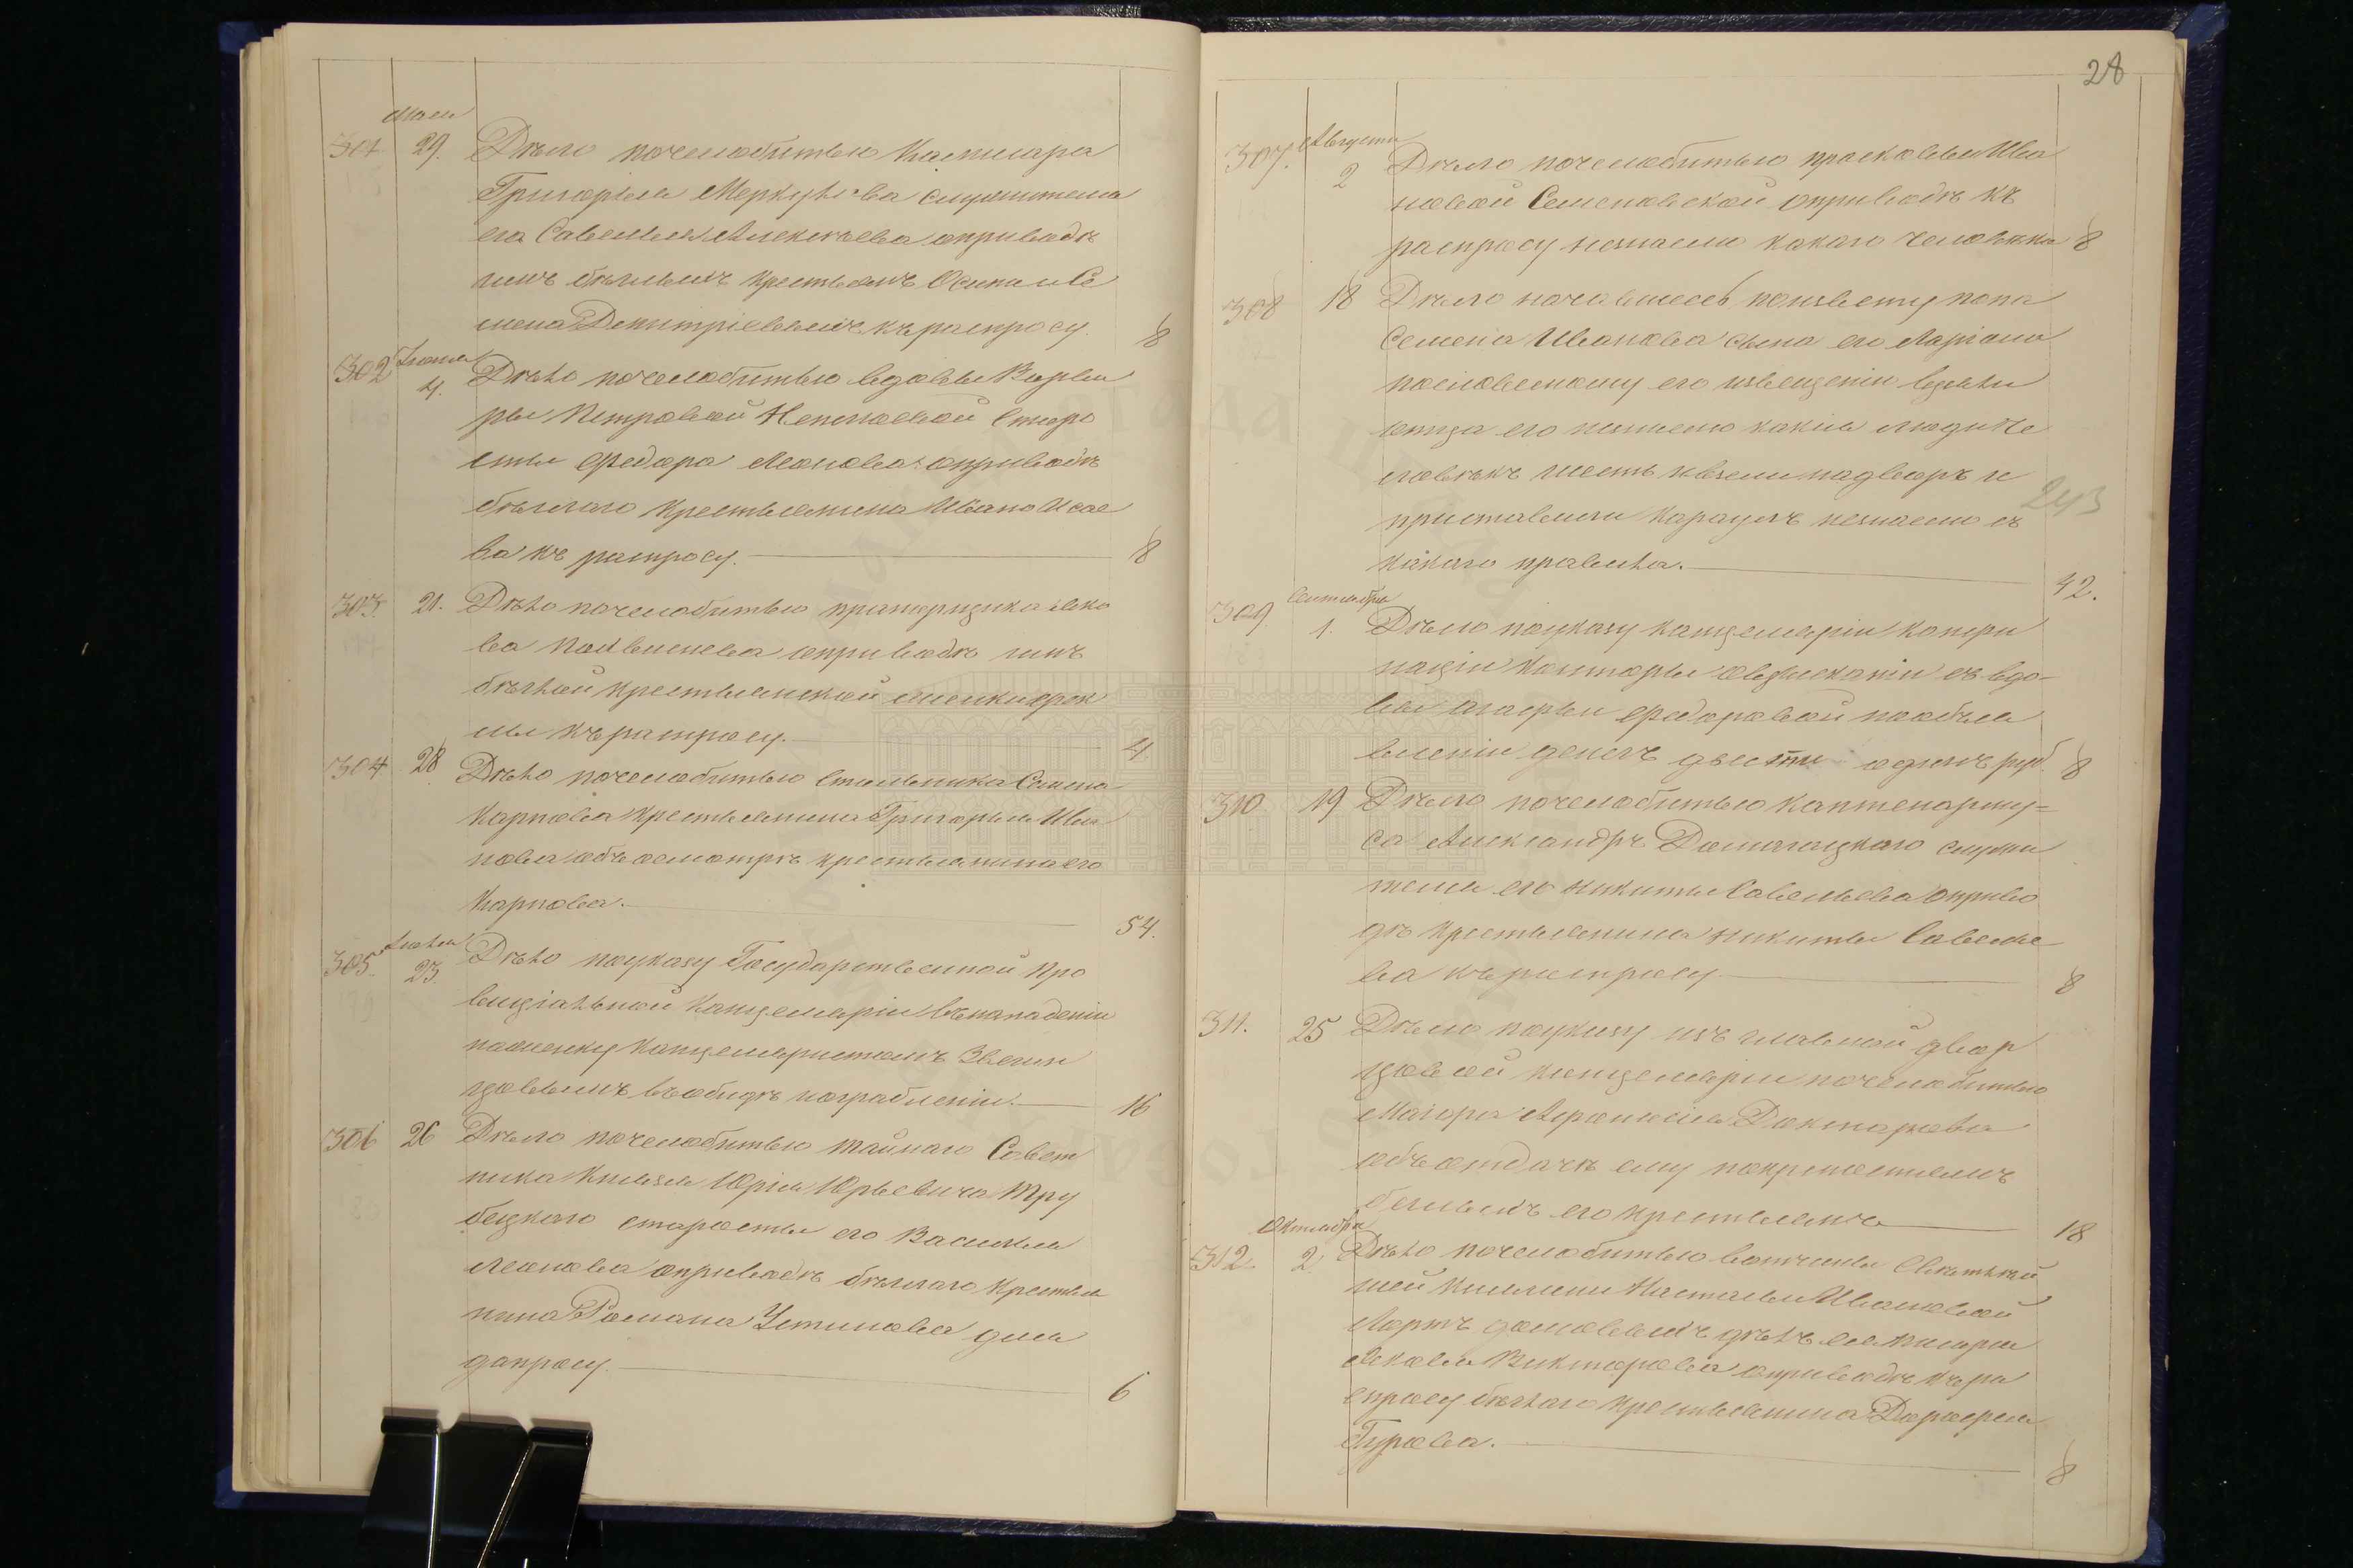 Маія
301 29. Дѣло почелобитью Камисара
Григорья Меркул ва служителя
его Савелья Алексѣева оприводѣ
имъ бѣглыхъ крестьянъ Осипа и Се
мена Дмитріевыхъ къ распросу. 8
302 Іюня
4. Дѣло почелобитью вдовы Варва
ры Петровой Старо
сты Федора Леонова оприводѣ
бѣглаго крестьянина Ивана Исае
ва къ распросу. 8
303. 21. Дѣло почелобитью Якo
ва оприводѣ имъ
бѣглой крестьянской
къ распросу. 4
304 28 Дѣло почелобитью Стольника Семена
Карпова крестьянина Григорья Ива
нова объ осмотрѣ крестьянина его
Карпова. 54.
305. Іюля
23. Дѣло поуказу Государственной Про
винціальной Канцеляріи въ нападеніи
Канцеляристомъ Звягин
цовымъ въ обидѣ и ограбленіи. 16
306 26 Дѣло почелобитью тайнаго Совет
ника Князя Юрія Юрьевича Тру
бецкаго старосты его Василья
Леонова оприводѣ бѣглаго крестья
нина Романа Устинова для
допросу. 6
28
307. Августа
2 Дѣло почелобитью Прасковьи Ива
новой Семеновской оприводѣ къ
распросу незнаемо какого человѣка 8
308 18 Дѣло начавшееся поизвету попа
Семена Иванова сына его Ларіона
пословесному его извещенію
отца его незнаемо какія люди че
ловѣкъ шесть и взяли надворъ и
приставили караулъ незнаемо съ
какого правила. 42.
243
309 Сентября
1. Дѣло поуказу канцеляріи Конфи
скаціи Конторы овзысканіи съ вдо-
вы Федоровой пообъя
вленію денегъ двести одинъ руб. 8
310 19 Дѣло почелобитью Каптенарму=
са Александръ Домогацкаго служи
теля его Никиты Савельева оприво
дѣ крестьянина Никиты Савелье
ва къ распросу 8
311. 25 Дѣло поуказу изъ главной двор
цовой канцеляріи почелобитью
Маіора Афонасія Дохтурова
объ отдачѣ ему покрепостямъ
беглыхъ его крестьянъ 18
312. Октября
2. Дѣло почелобитью вотчины Светлѣй
шей Княгини Настасьи Ивановой
домовыхъ дѣлъ
Якова Викторова оприводѣ къ ра
спросу бѣглаго крестьянина Дорофея
Гурова. 8